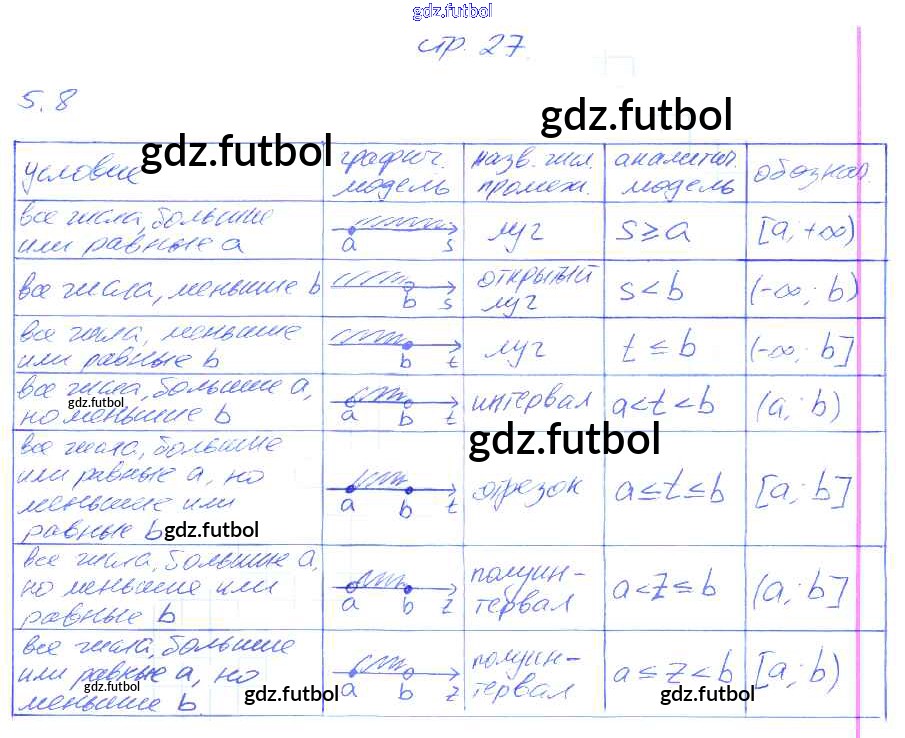 gdz.futbol
стр. 27.
5.8
gdz.futbol
gdz.futbol
условие
графич. модель
назв. чис. промеж.
аналитич. модель
обознач.
все числа, большие
или равные a
a s
луч
s ≥ a
[a, +∞)
все числа, меньшие b
b s
открытый
луч
s < b
(-∞; b)
все числа, меньшие
или равные b
b t
луч
t ≤ b
(-∞; b]
все числа, большие a,
но меньшие b
gdz.futbol
a b t
интервал
a < t < b
(a; b)
gdz.futbol
все числа, большие
или равные a, но
меньшие или
равные b
gdz.futbol
a b t
отрезок
a ≤ t ≤ b
[a; b]
все числа, большие a,
но меньшие или
равные b
a b z
полуин-
тервал
a < z ≤ b
(a; b]
все числа, большие
или равные a, но
меньшие b
gdz.futbol
gdz.futbol
a b z
полуин-
тервал
a ≤ z < b
[a; b)
gdz.futbol